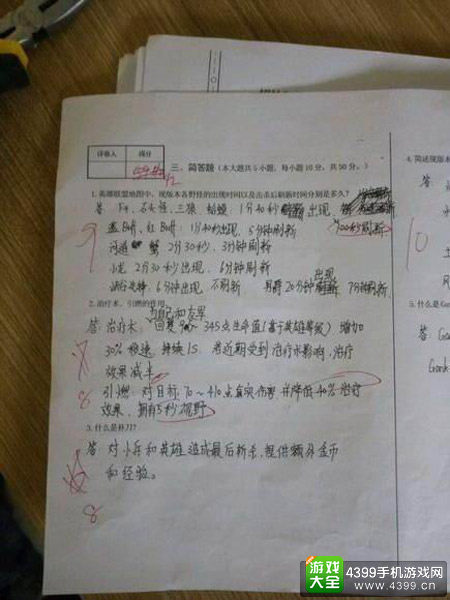 评卷人 得分
三、简答题（本大题共5小题，每小题10分，共50分。）
1.英雄联盟地图中，现版本各野怪的出现时间以及击杀后刷新时间分别是多久？
答：F4、石头怪、三狼、蛤蟆：1分40秒 出现 100秒刷新
蓝Buff、红Buff：1分40秒出现，5分钟刷新
河道 蟹 2分30秒，3分钟刷新
小龙 2分30秒出现，6分钟刷新
峡谷先锋 6分钟出现，不刷新 男爵 20分钟 出现 7分钟刷新
9
2.治疗术、引燃的作用
为自己和友军
答：治疗术：回复 90～345点生命值（基于英雄等级）增加
30%移速 持续1S. 若近期受到治疗术影响，治疗
效果减半
引燃：对目标70～410点真实伤害 并降低40%治疗
效果，拥有5秒视野
8
3.什么是补刀？
答 对小兵和英雄造成最后斩杀，提供额外金币
和经验。
8
4.简述现版本
答
10
5.什么是G
答：G
Gank
游戏大全 4399手机游戏网
www.4399.cn